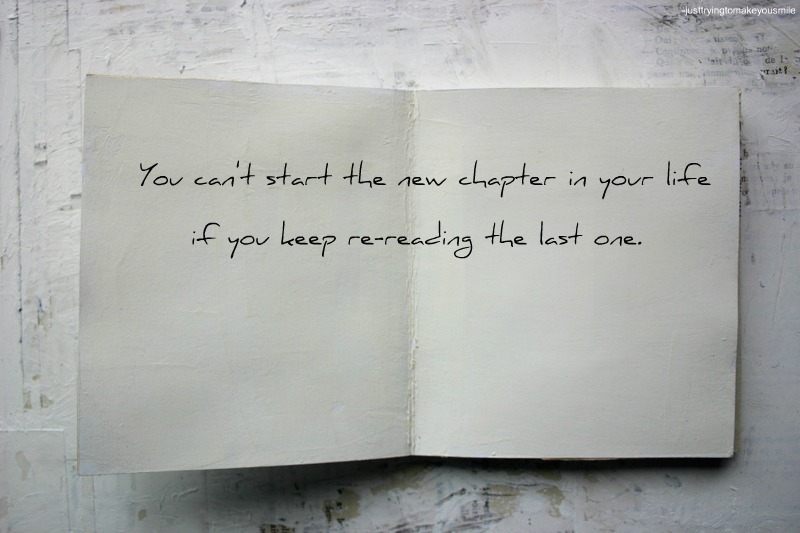 -justtryingtomakeyousmile
You can't start the new chapter in your life
if you keep re-reading the last one.